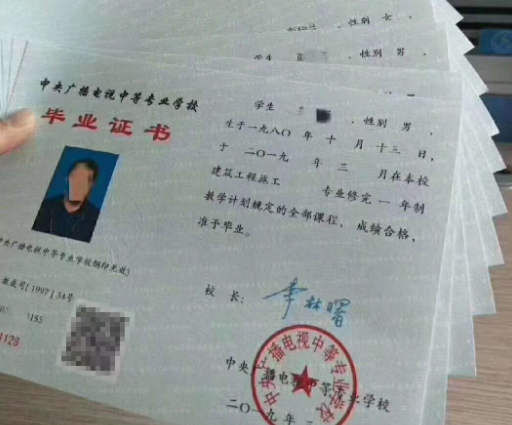 性别 女，
学生
性别 男，
中央广播电视中等专业学校
毕业证书
中央广播电视中等专业学校钢印无效)
[1997]34号
155
1128
学生
性别 男，
生于一九八〇 年 十 月 十三 日，
于 二〇一九 年 三 月在本校
建筑工程施工 专业修完 一 年制
教学计划规定的全部课程，成绩合格，
准予毕业。
校 长：
李林曙
中央广播电视中等专业学校
中央广播电视中等专业学校
二〇一九年